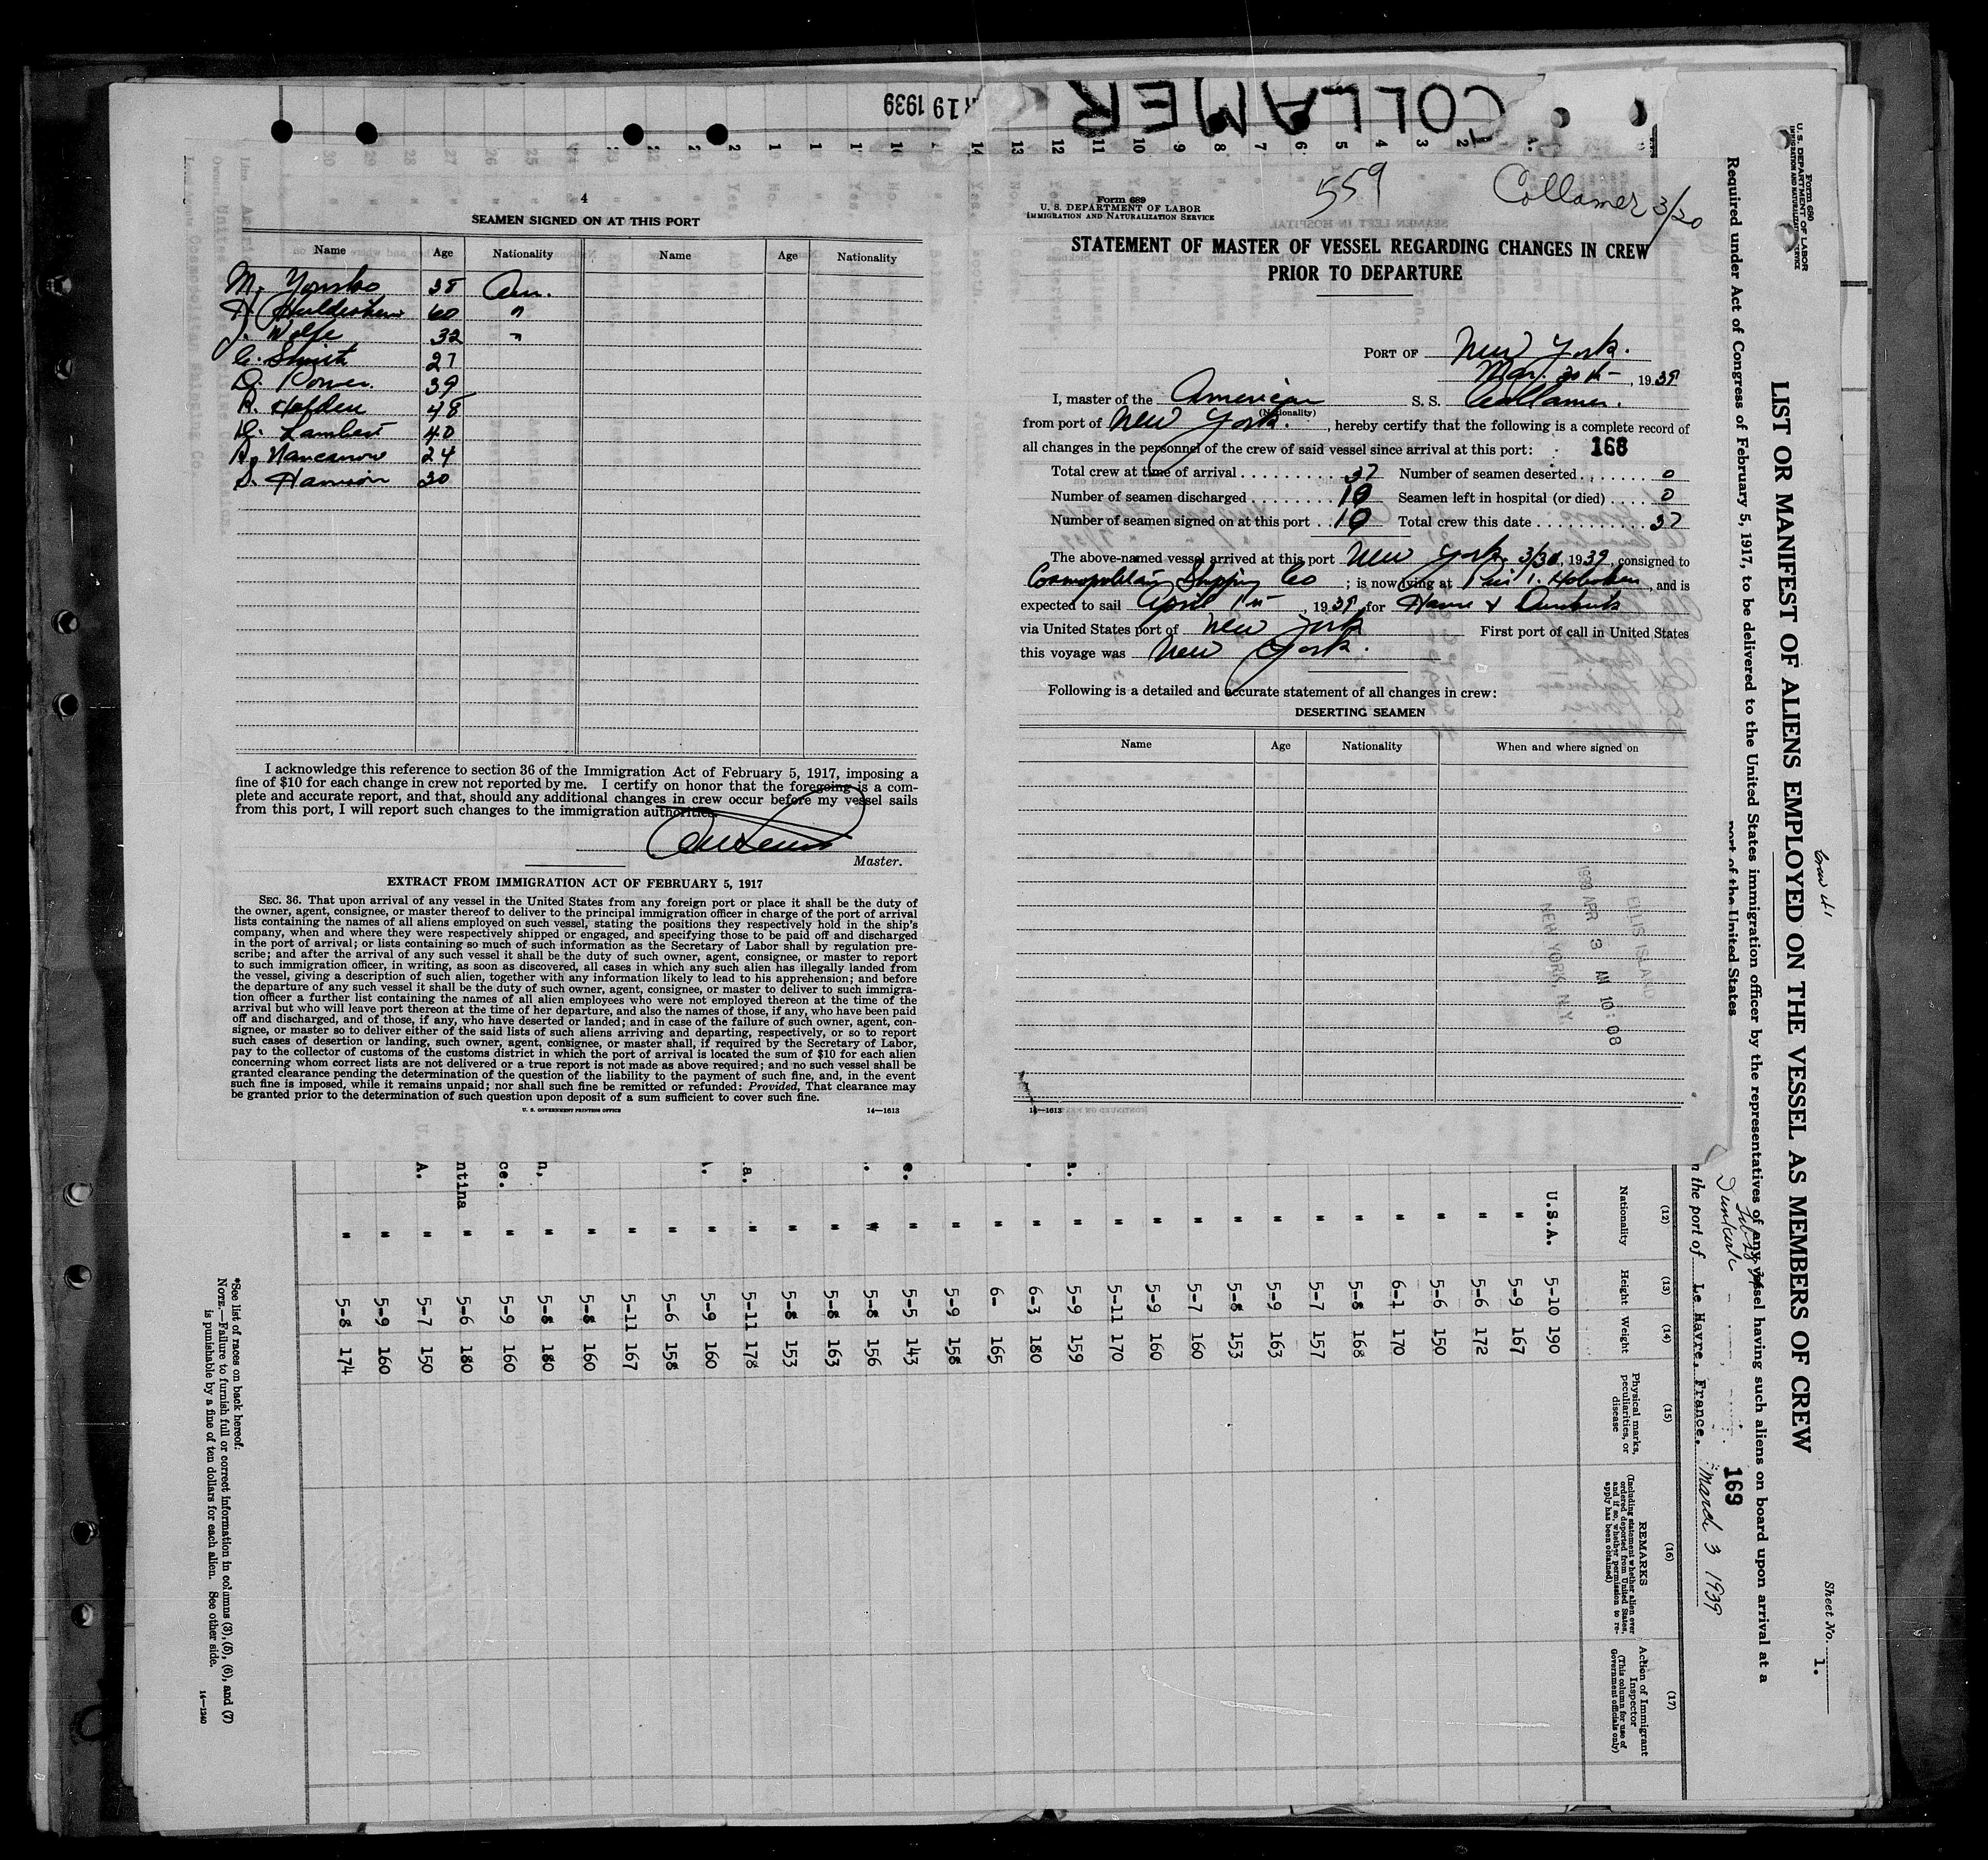 R 19 1939
COLLAMER
559
Collamer 3/20
4
SEAMEN SIGNED ON AT THIS PORT
Name Age Nationality Name Age Nationality
38 Am.
60 "
J. Wolfe 32 "
C. Smith 27
D. Power 39
A. Holden 48
C. Lambert 40
24
S. Harrison 30
I acknowledge this reference to section 36 of the Immigration Act of February 5, 1917, imposing a
fine of $10 for each change in crew not reported by me. I certify on honor that the foregoing is a com-
plete and accurate report, and that, should any additional changes in crew occur before my vessel sails
from this port, I will report such changes to the immigration authorities.
Master.
EXTRACT FROM IMMIGRATION ACT OF FEBRUARY 5, 1917
SEC. 36. That upon arrival of any vessel in the United States from any foreign port or place it shall be the duty of
the owner, agent, consignee, or master thereof to deliver to the principal immigration officer in charge of the port of arrival
lists containing the names of all aliens employed on such vessel, stating the positions they respectively hold in the ship's
company, when and where they were respectively shipped or engaged, and specifying those to be paid off and discharged
in the port of arrival; or lists containing so much of such information as the Secretary of Labor shall by regulation pre-
scribe; and after the arrival of any such vessel it shall be the duty of such owner, agent, consignee, or master to report
to such immigration officer, in writing, as soon as discovered, all cases in which any such alien has illegally landed from
the vessel, giving a description of such alien, together with any information likely to lead to his apprehension; and before
the departure of any such vessel it shall be the duty of such owner, agent, consignee, or master to deliver to such immigra-
tion officer a further list containing the names of all alien employees who were not employed thereon at the time of the
arrival but who will leave port thereon at the time of her departure, and also the names of those, if any, who have been paid
off and discharged, and of those, if any, who have deserted or landed; and in case of the failure of such owner, agent, con-
signee, or master so to deliver either of the said lists of such aliens arriving and departing, respectively, or so to report
such cases of desertion or landing, such owner, agent, consignee, or master shall, if required by the Secretary of Labor,
pay to the collector of customs of the customs district in which the port of arrival is located the sum of $10 for each alien
concerning whom correct lists are not delivered or a true report is not made as above required; and no such vessel shall be
granted clearance pending the determination of the question of the liability to the payment of such fine, and, in the event
such fine is imposed, while it remains unpaid; nor shall such fine be remitted or refunded: Provided, That clearance may
be granted prior to the determination of such question upon deposit of a sum sufficient to cover such fine.
U. S. GOVERNMENT PRINTING OFFICE 14—1613
Form 689
U. S. DEPARTMENT OF LABOR
IMMIGRATION AND NATURALIZATION SERVICE
STATEMENT OF MASTER OF VESSEL REGARDING CHANGES IN CREW
PRIOR TO DEPARTURE
PORT OF New York.
Mar. 30th, 1939
I, master of the American S. S. Collamer.
(Nationality)
from port of New York., hereby certify that the following is a complete record of
all changes in the personnel of the crew of said vessel since arrival at this port: 168
Total crew at time of arrival 37 Number of seamen deserted 0
Number of seamen discharged 10 Seamen left in hospital (or died) 0
Number of seamen signed on at this port 10 Total crew this date 37
The above-named vessel arrived at this port New York 3/30, 1939, consigned to
Cosmopolitan Shipping Co; is now lying at Pier 1. Hoboken, and is
expected to sail April 1st, 1939 for Havre & Dunkirk
via United States port of New York First port of call in United States
this voyage was New York.
Following is a detailed and accurate statement of all changes in crew:
DESERTING SEAMEN
Name Age Nationality When and where signed on
ELLIS ISLAND
1939 APR 3 AM 10:08
NEW YORK, N.Y.
14—1613
Form 680
U. S. DEPARTMENT OF LABOR
IMMIGRATION AND NATURALIZATION SERVICE
Sheet No. 1.
LIST OR MANIFEST OF ALIENS EMPLOYED ON THE VESSEL AS MEMBERS OF CREW
Required under Act of Congress of February 5, 1917, to be delivered to the United States immigration officer by the representatives of any vessel having such aliens on board upon arrival at a
port of the United States
169
Dunkirk
the port of Le Havre, France. March 3 1939
(12) (13) (14) (15) (16) (17)
Nationality Height Weight Physical marks, peculiarities, or disease
REMARKS (Including statement whether alien ever ordered deported from United States, and if so, whether permission to reapply has been obtained)
Action of Immigrant Inspector (This column for use of Government officials only)
U.S.A. 5-10 190
" 5-9 167
" 5-6 172
" 5-6 150
" 6-1 170
" 5-8 168
" 5-7 157
" 5-9 163
" 5-8 153
" 5-7 160
" 5-9 160
" 5-11 170
" 5-9 159
" 6-3 180
" 6- 165
" 5-9 158
" 5-5 143
" 5-8 156
" 5-8 163
" 5-8 153
" 5-11 178
" 5-9 160
" 5-6 158
" 5-11 167
" 5-8 160
" 5-8 180
" 5-9 160
" 5-6 180
" 5-7 150
" 5-9 160
" 5-8 174
*See list of races on back hereof.
NOTE.—Failure to furnish full or correct information in columns (3), (5), (6), and (7)
is punishable by a fine of ten dollars for each alien. See other side.
14—1240